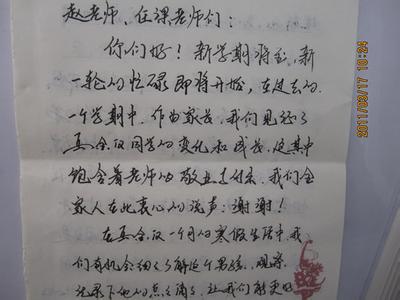 赵老师、任课老师们：
你们好！新学期将至，新
一轮的忙碌即将开始，在过去的
一个学期中，作为家长，我们见证了
同学的变化和成长，这其中
饱含着老师的敬业与付出，我们全
家人在此衷心的说声：谢谢！
在 一个月的寒假生活中，我
们有机会细细了解这个男孩，观察
他的点点滴滴，让我们能更好
2011/02/17 10:24